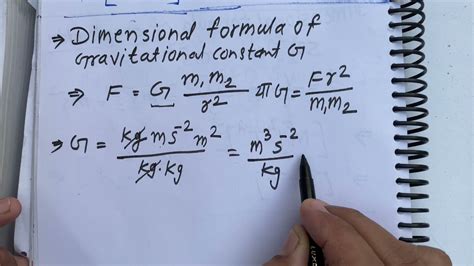 ⇒ Dimensional formula of
Gravitational constant G
⇒ F = G m₁m₂/r² या G = Fr²/m₁m₂
⇒ G = kg ms⁻² m²/kg.kg = m³s⁻²/kg